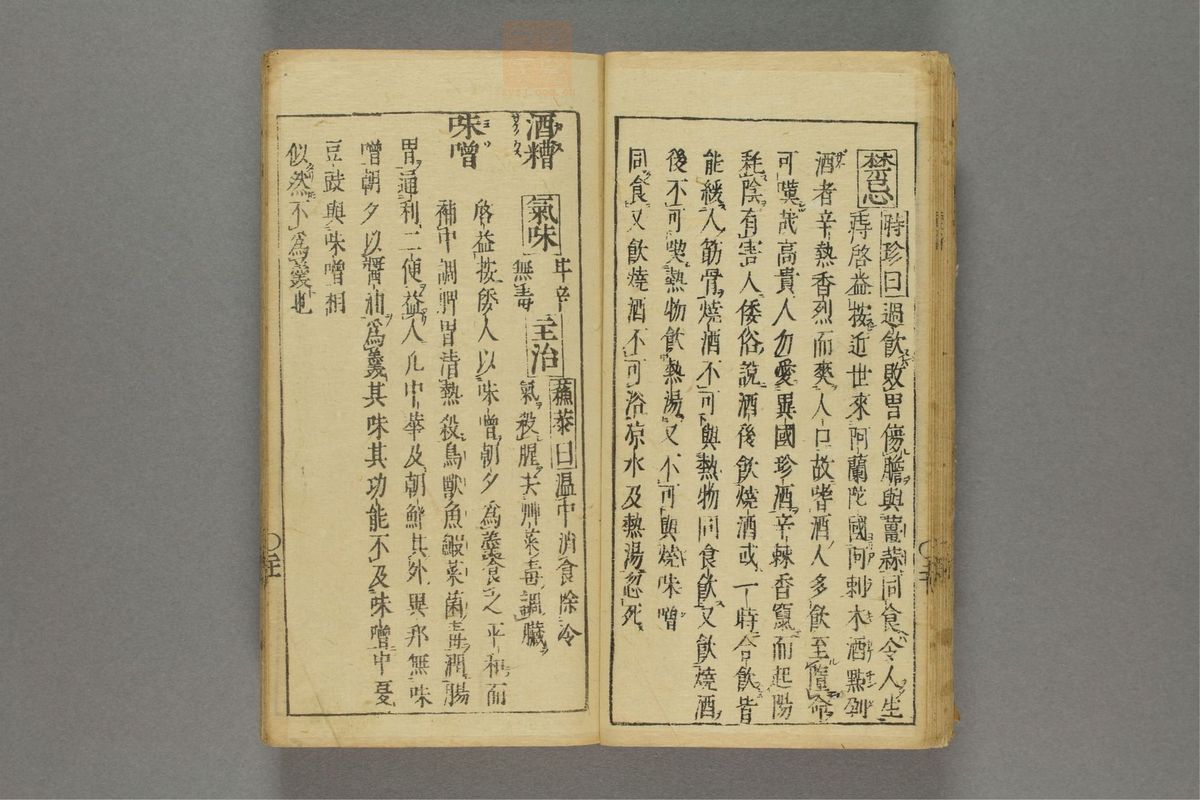 禁忌 時珍曰過飲敗胃傷膽與薑蒜同食令人生
痔啓益按近世來阿蘭陀國阿刺木酒㸃剉
酒者辛熱香烈而爽人口故嗜酒人多飲至隕命
可嘆哉高貴人勿愛異國珍酒辛辣香竄而起陽
耗陰有害人倭俗說酒後飲燒酒或一時合飲皆
能緩人筋骨燒酒不可與熱物同食飲又飲燒酒
後不可喫熱物飲熱湯又不可與燒味噌
同食又飲燒酒不可浴凉水及熱湯忽死
酒糟 氣味 甘辛無毒 主治 蘓恭曰温中消食除冷
氣殺腥去艸菜毒調臟
味噌 啓益按倭人以味噌朝夕為羹食之平和而
補中調脾胃清熱殺鳥獸魚鰕菜菌毒潤腸
胃通利二便益人凡中華及朝鮮其外異邦無味
噌朝夕以醬油為羹其味其功能不及味噌中夏
豆豉與味噌相
似然不為羹也